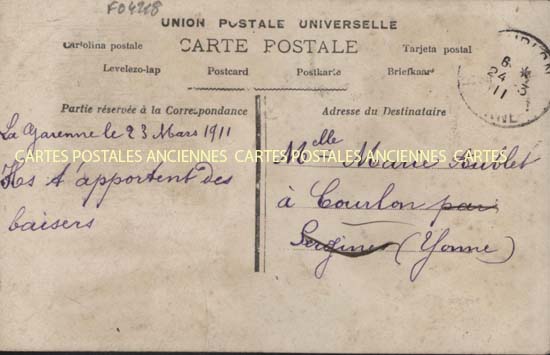 F04218
UNION POSTALE UNIVERSELLE
CARTE POSTALE
Cartolina postale
Tarjeta postal
Levelezo-lap
Postcard
Postkarte
Briefkaart
Partie réservée à la Correspondance
Adresse du Destinataire
La Garenne le 23 Mars 1911
Ils t'apportent des
baisers
Melle Marie
à Courlon par
Sergines (Yonne)
CARTES POSTALES ANCIENNES CARTES POSTALES ANCIENNES CARTES
6 *
24 3
11